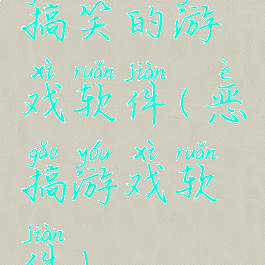 搞笑的游
xì ruǎn jiàn è
戏软件(恶
gǎo yóu xì ruǎn
搞游戏软
jiàn
件)